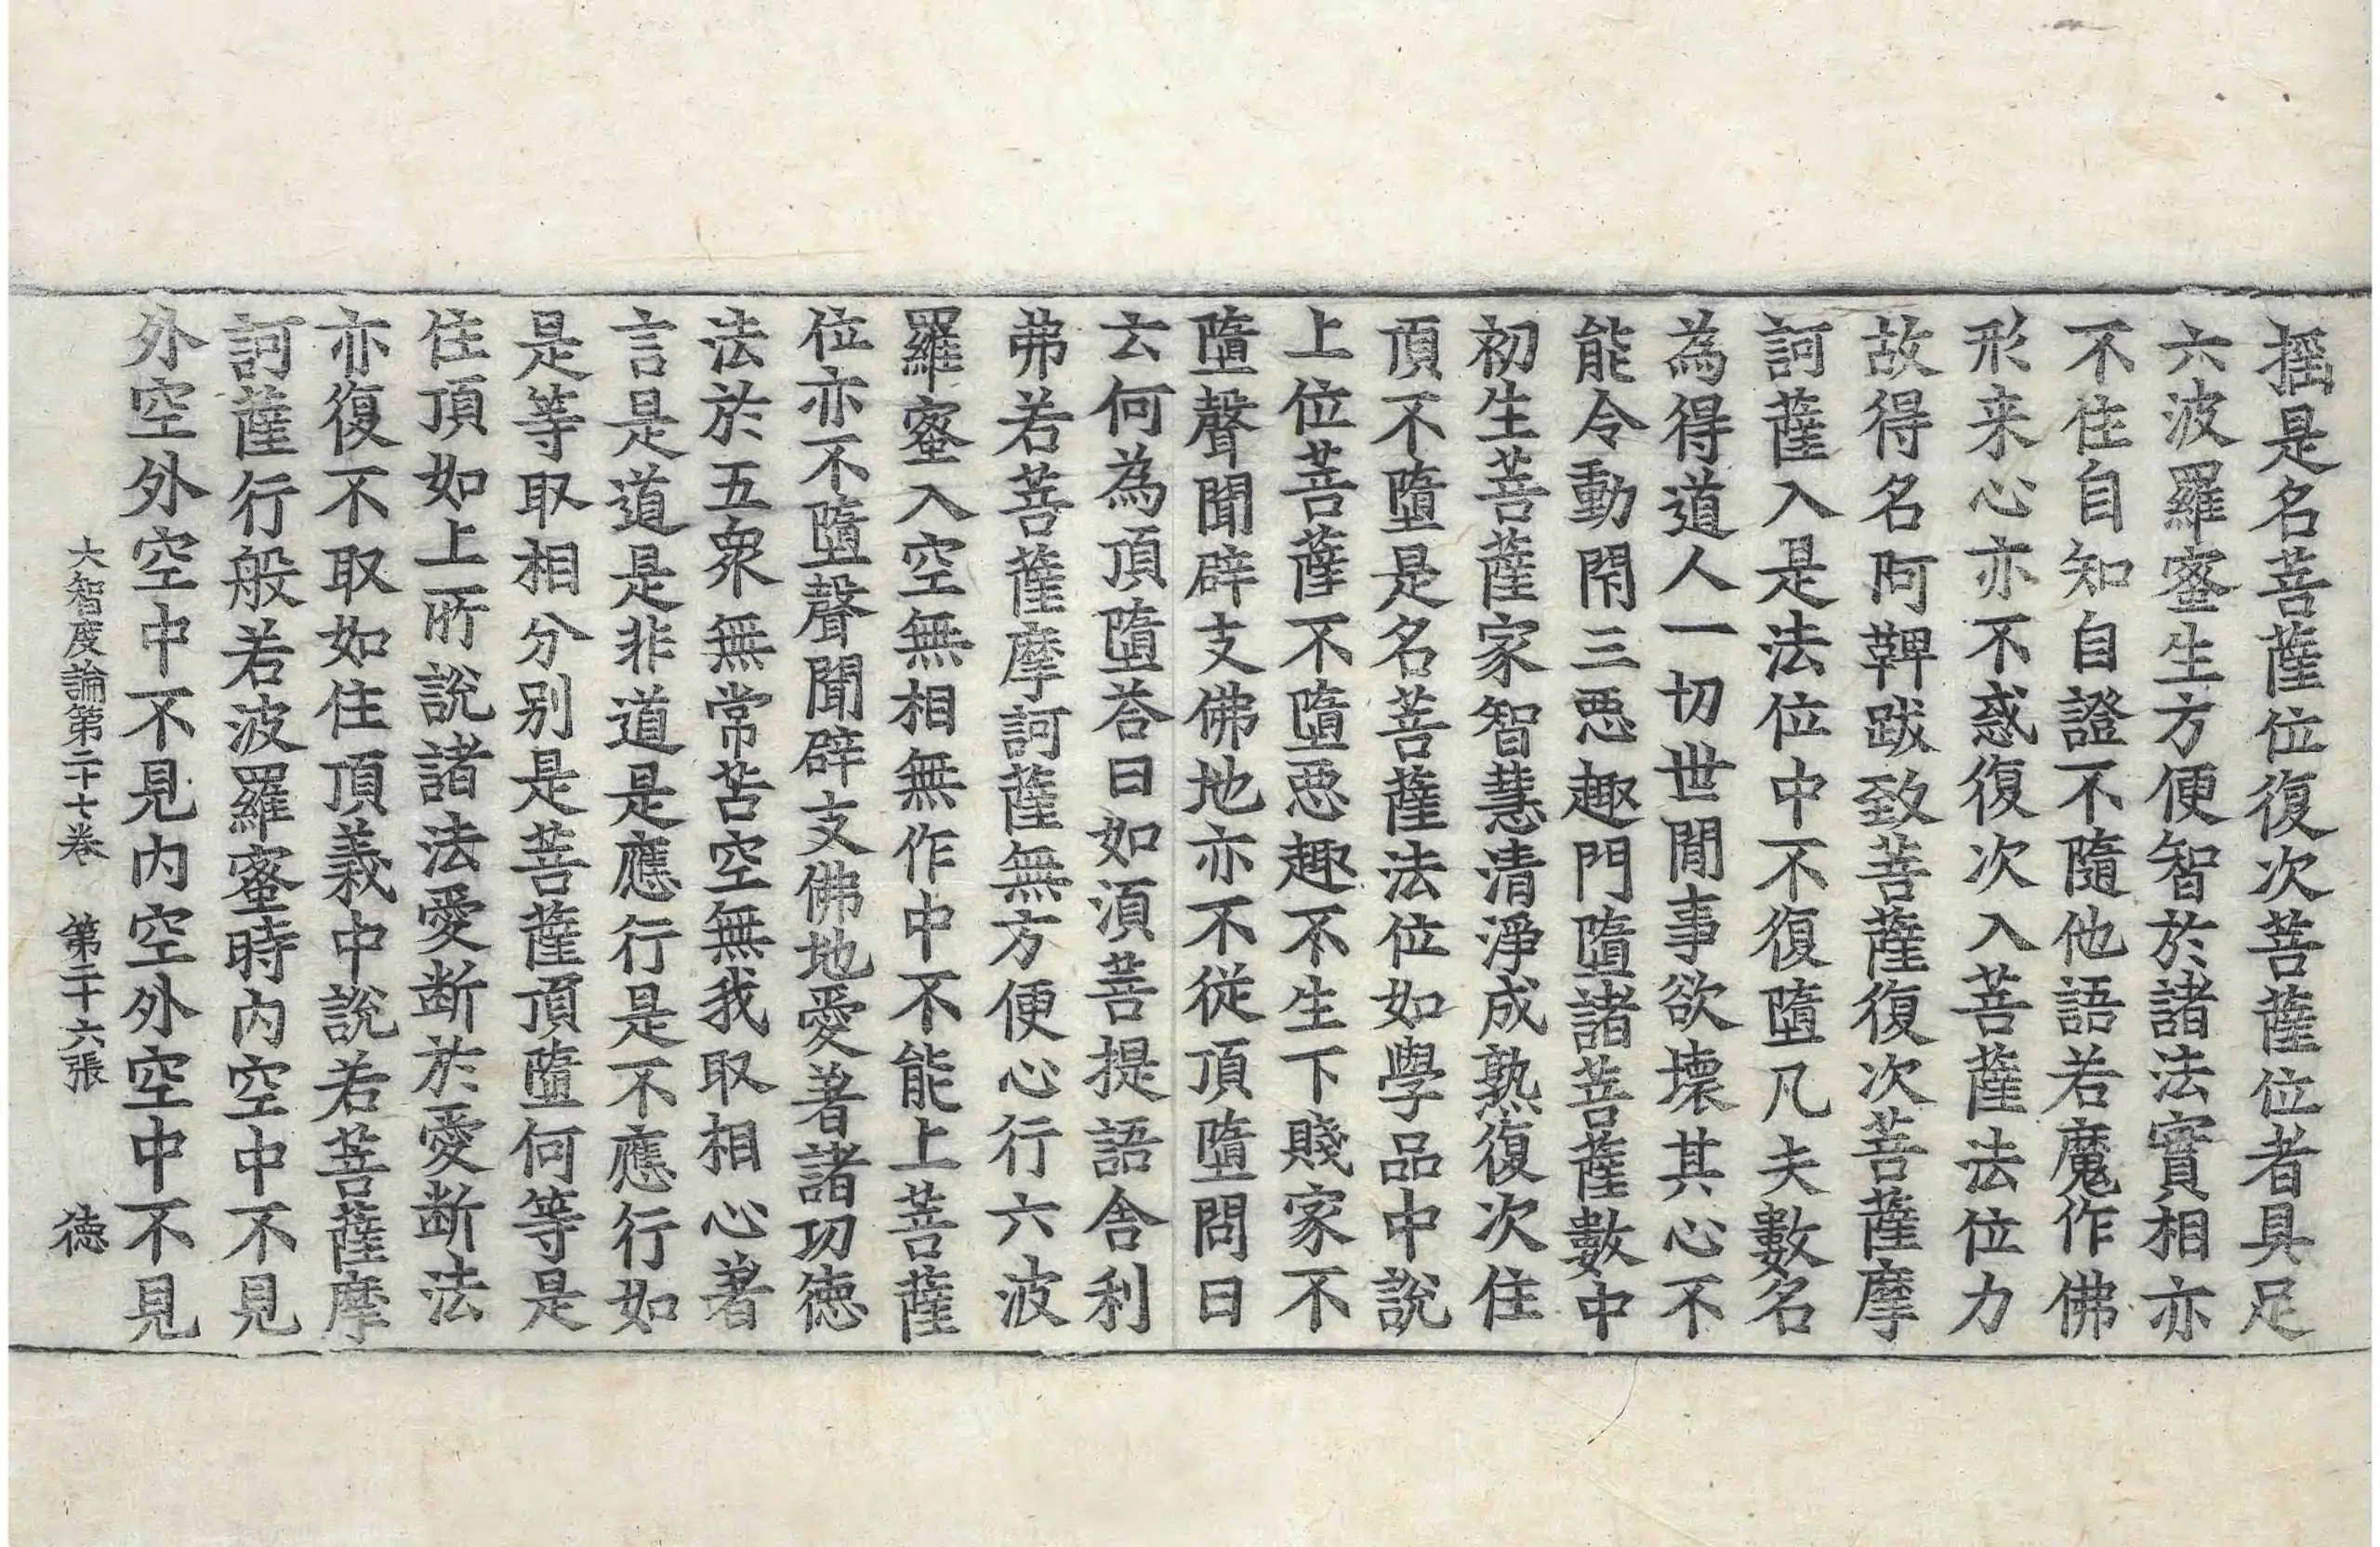 摇是名菩薩位復次菩薩位者具足
六波羅蜜生方便智於諸法實相亦
不住自知自證不隨他語若魔作佛
形来心亦不惑復次入菩薩法位力
故得名阿鞞跋致菩薩復次菩薩摩
訶薩入是法位中不復墮凡夫數名
為得道人一切世間事欲壞其心不
能令動閇三惡趣門墮諸菩薩數中
初生菩薩家智慧清淨成熟復次住
頂不墮是名菩薩法位如學品中說
上位菩薩不墮惡趣不生下賤家不
墮聲聞辟支佛地亦不從頂墮問曰
云何為頂墮荅曰如湏菩提語舍利
弗若菩薩摩訶薩無方便心行六波
羅蜜入空無相無作中不能上菩薩
位亦不墮聲聞辟支佛地愛著諸功德
法於五衆無常苦空無我取相心著
言是道是非道是應行是不應行如
是等取相分别是菩薩頂墮何等是
住頂如上所說諸法愛斷於愛斷法
亦復不取如住頂義中說若菩薩摩
訶薩行般若波羅蜜時內空中不見
外空外空中不見内空外空中不見
大智度論第二十七卷 第二十六張 德